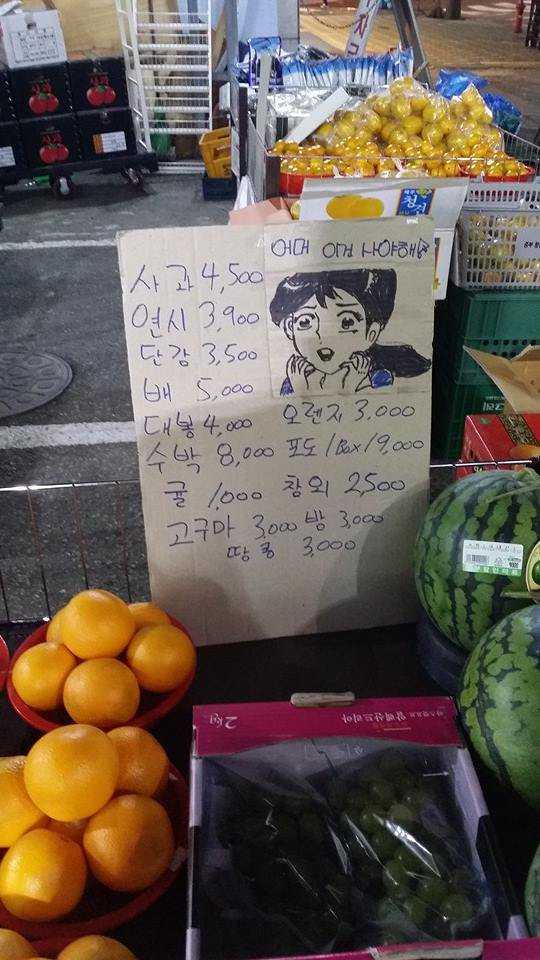 어머 이건 사야해
사과 4,500
연시 3,900
단감 3,500
배 5,000
대봉 4,000 오렌지 3,000
수박 8,000 포도 1Box 19,000
귤 1,000 참외 2,500
고구마 3,000 밤 3,000
땅콩 3,000
2kg